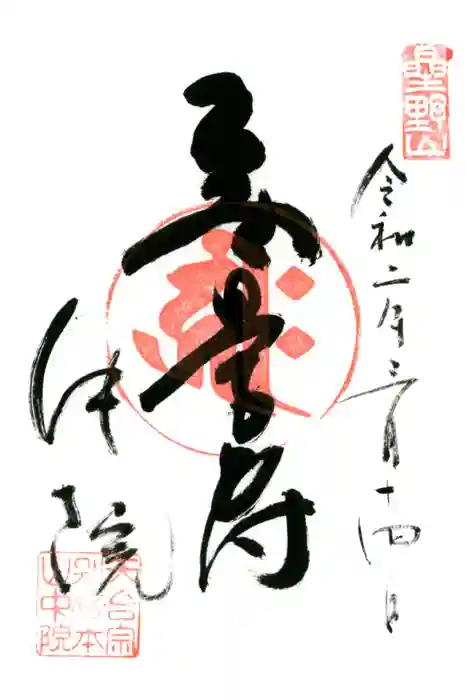 星野山
令和二年三月十四日
無量寿
中院
天台宗
別格本
山中院